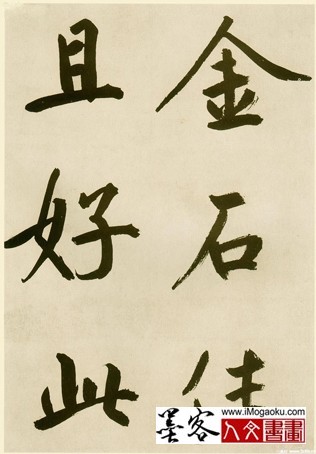 金石
且好此
www.iMogaoku.com
墨客
人文書畫